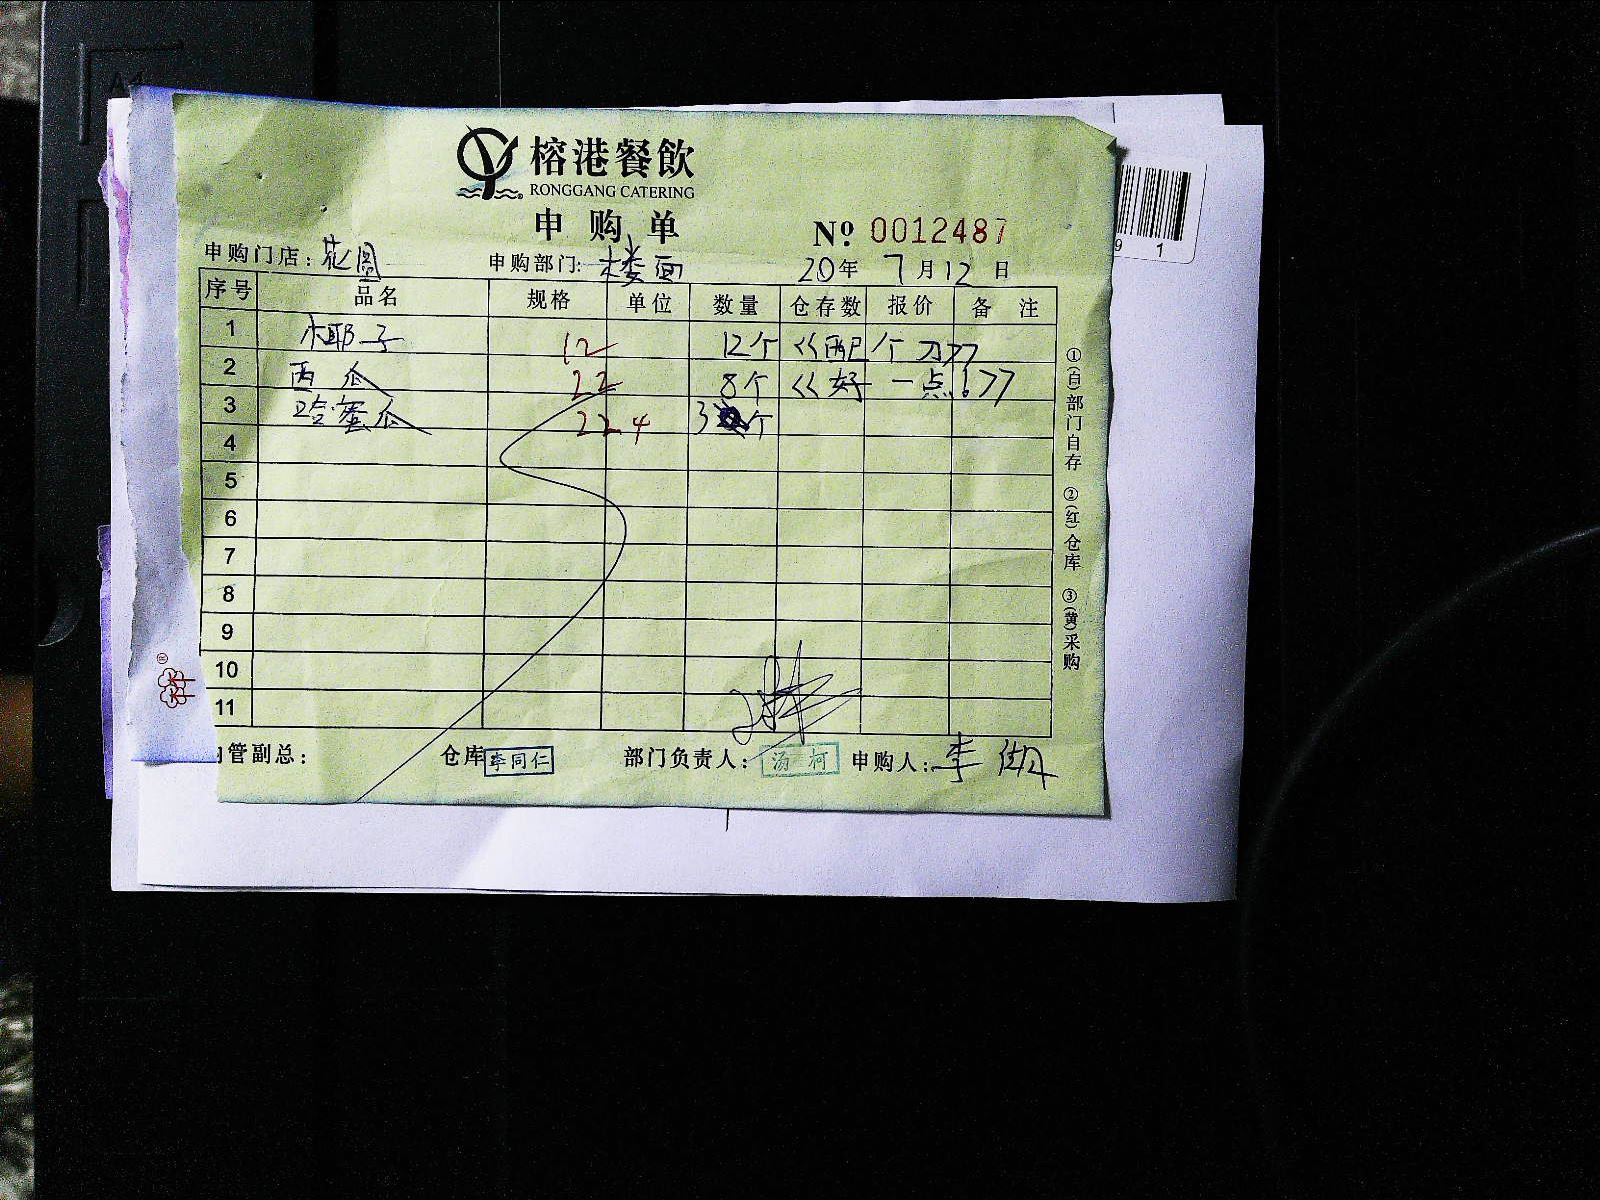 A4
榕港餐飲
RONGGANG CATERING
申购单
Nº 0012487
申购门店：花圆 申购部门：楼面 20年 7月12日
序号 品名 规格 单位 数量 仓存数 报价 备注
1 椰子 12 12个 《《配个刀》》
2 西瓜 22 8个 《《好一点！》》
3 哈蜜瓜 22.4 3个
4
5
6
7
8
9
10
11
管副总： 仓库 李同仁 部门负责人： 汤柯 申购人：李
①(白)部门自存 ②(红)仓库 ③(黄)采购
9 1